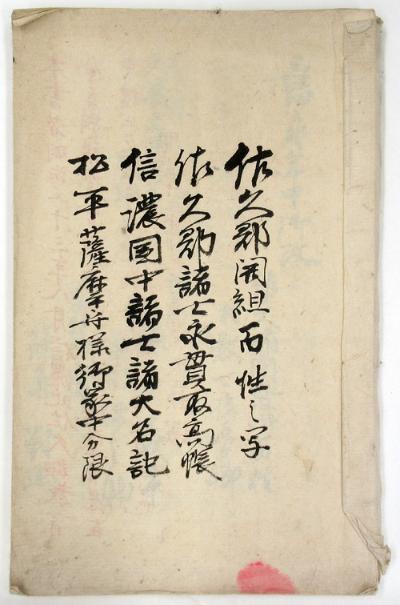 佐久郡開組百性之写
佐久郡諸士永貫取高帳
信濃国中諸士諸大名記
松平薩摩守様御家中分限